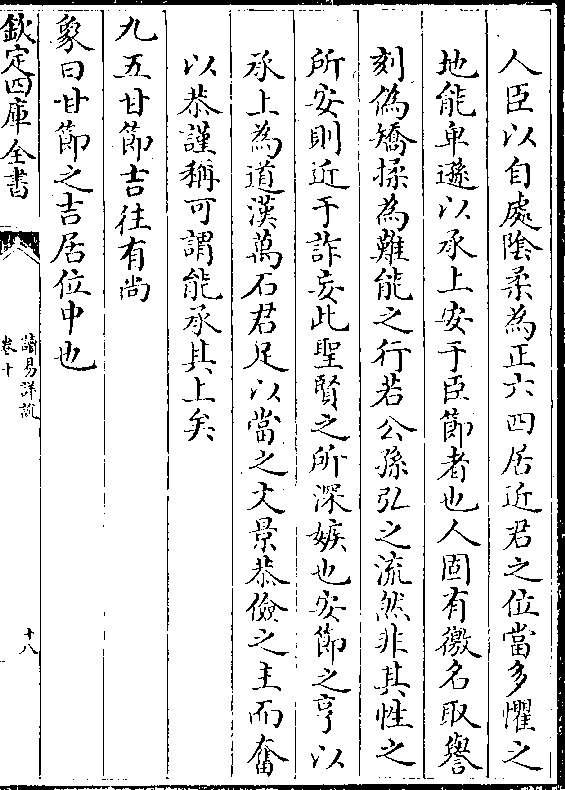 人臣以自處隂柔為正六四居近君之位當多懼之
地能卑遜以承上安于臣節者也人固有徼名取譽
刻偽矯揉為難能之行若公孫弘之流然非其性之
所安則近于詐妄此聖賢之所深嫉也安節之亨以
承上為道漢萬石君足以當之文景恭儉之主而奮
以恭謹稱可謂能承其上矣
九五甘節吉往有尚
象曰甘節之吉居位中也
欽定四庫全書
讀易詳說
卷十
十八